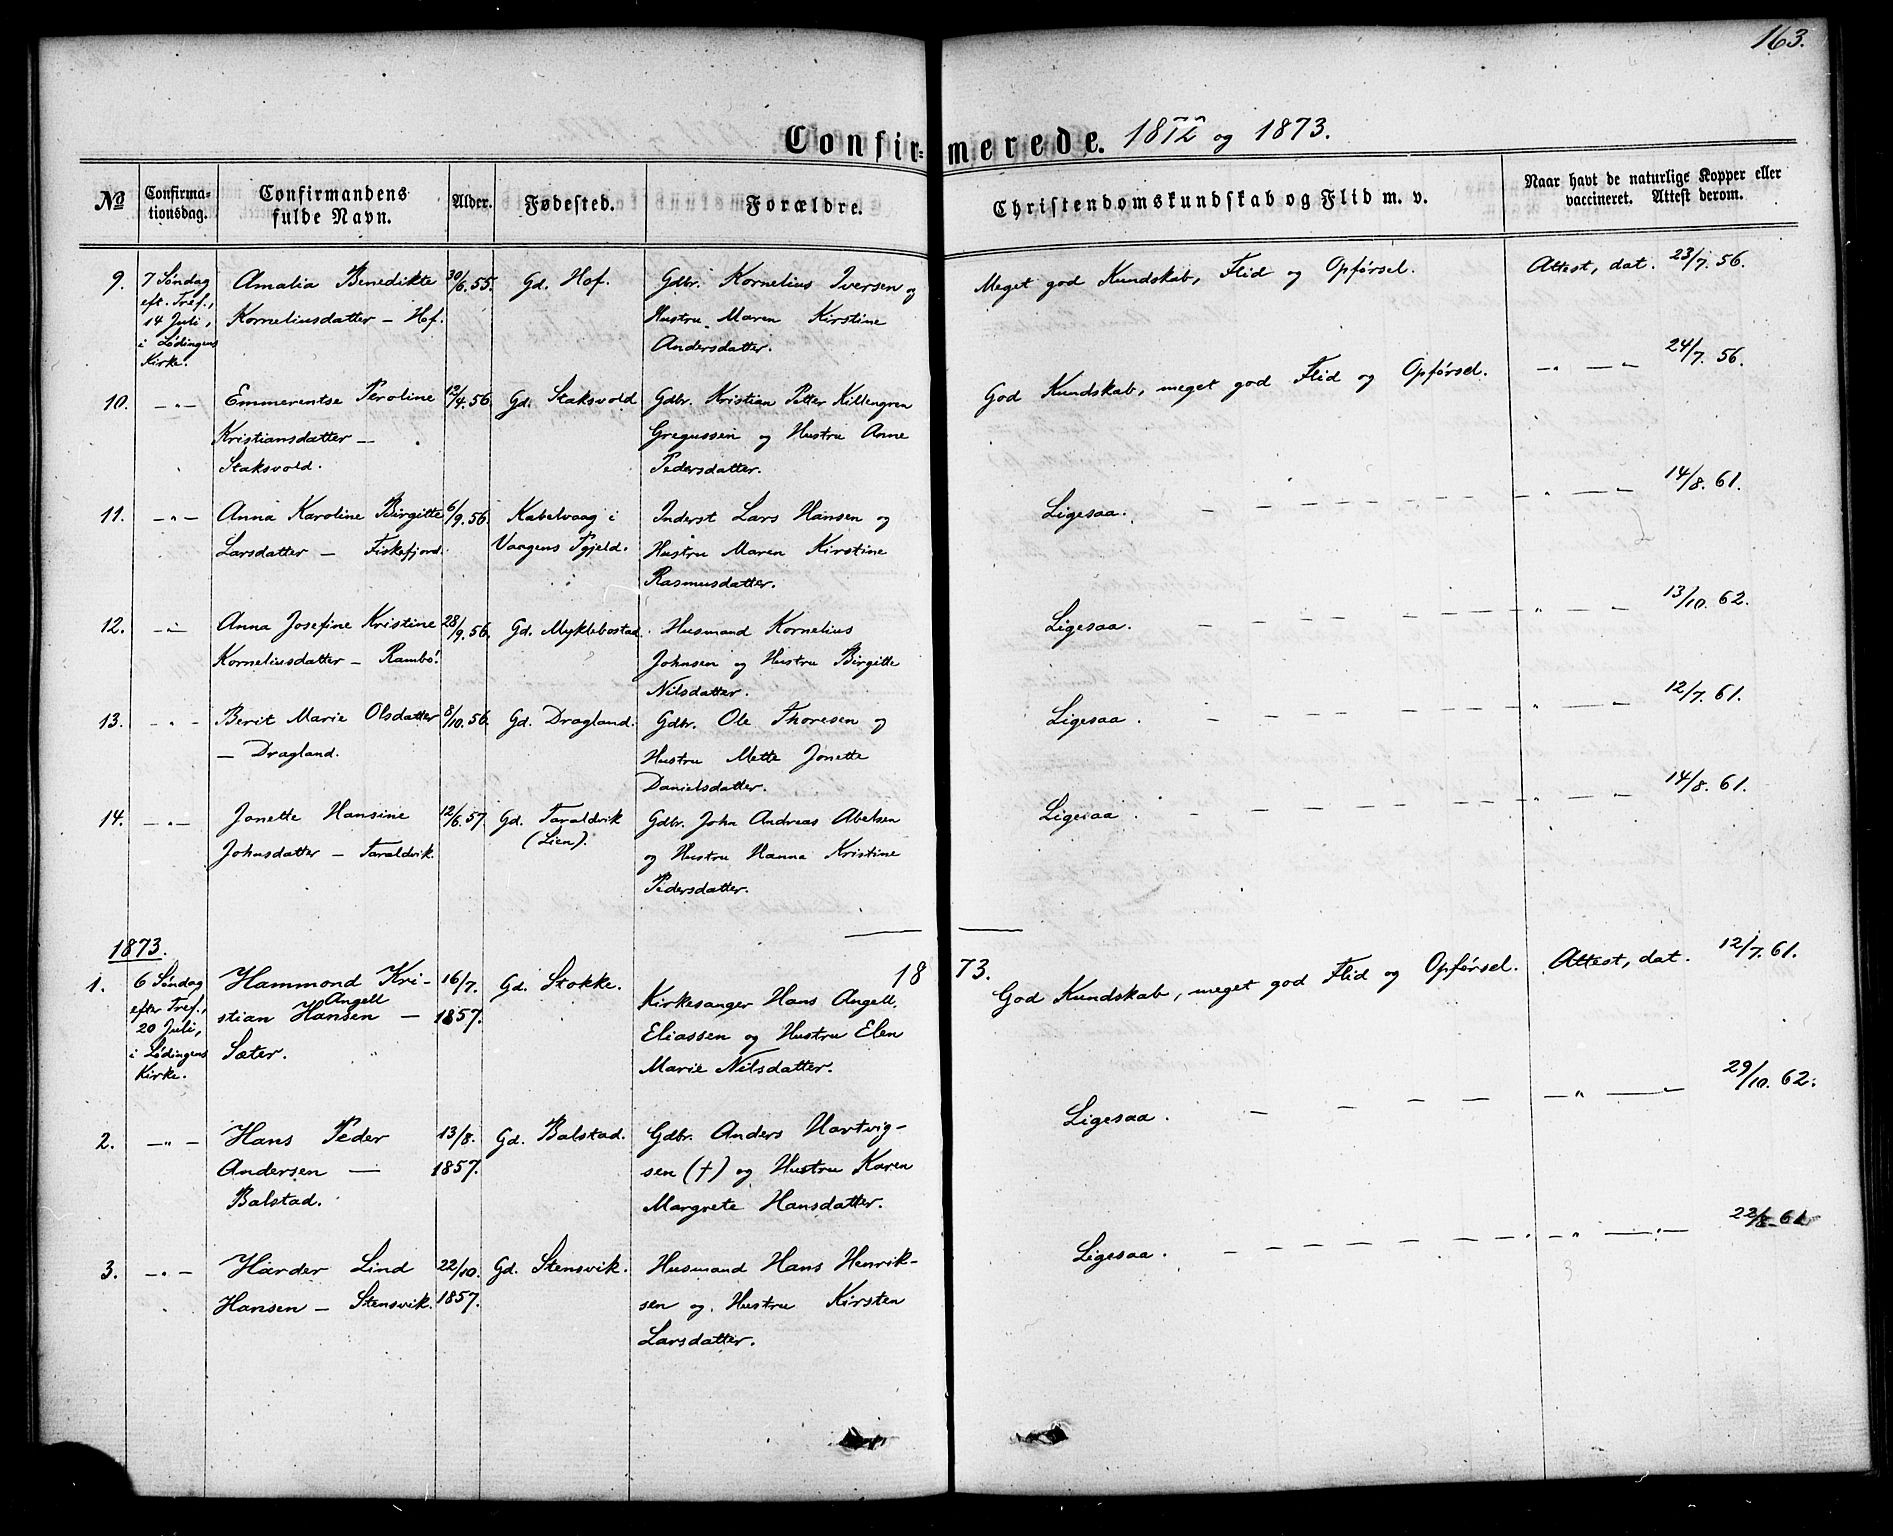 163.
Confirmerede. 1872 og 1873.
No
Confirmationsdag.
Confirmandens fulde Navn.
Alder.
Fødested.
Forældre.
Christendomskundskab og Flid m. v.
Naar havt de naturlige Kopper eller vaccineret. Attest derom.
9. 7 Søndag Amalia Benedikte 30/6. 55. Gd. Hof. Gdbr. Kornelius Iversen og Meget god Kundskab, Flid og Opførsel. Attest, dat. 23/7. 56.
eft. Tref., Korneliusdatter – Hof. Hustru Maren Kirstine
14 Juli, Andersdatter.
i Lødingens
Kirke.
10. – " – Emmerentse Peroline 12/4. 56. Gd. Staksvold Gdbr. Kristian Petter Killengren God Kundskab, meget god Flid og Opførsel. – " – 24/7. 56.
Kristiansdatter – Gregussen og Hustru Anne
Staksvold. Pedersdatter.
11. – " – Anna Karoline Birgitte 6/9. 56. Kabelvaag i Inderst Lars Hansen og Ligesaa. – " – 14/8. 61.
Larsdatter – Fiskefjord. Vaagens Pgjeld. Hustru Maren Kirstine
Rasmusdatter.
12. – " – Anna Josefine Kristine 28/9. 56. Gd. Myklebostad. Husmand Kornelius Ligesaa. – " – 13/10. 62.
Korneliusdatter – Rambø. Johnsen og Hustru Birgitte
Nilsdatter.
13. – " – Berit Marie Olsdatter 8/10. 56. Gd. Dragland. Gdbr. Ole Thoresen og Ligesaa. – " – 12/7. 61.
– Dragland. Hustru Mette Jonette
Danielsdatter.
14. – " – Jonette Hansine 12/6. 57. Gd. Taraldvik Gdbr. John Andreas Abelsen Ligesaa. – " – 14/8. 61.
Johnsdatter – Taraldvik. (Lien). og Hustru Hanna Kristine
Pedersdatter.
1873.
1873.
1. 6 Søndag Hammond Kri- 16/7. Gd. Stokke. Kirkesanger Hans Angell God Kundskab, meget god Flid og Opførsel. Attest, dat. 12/7. 61.
efter Tref., stian Angell Hansen – 1857. Eliassen og Hustru Elen
20 Juli, Sæter. Marie Nilsdatter.
i Lødingens
Kirke.
2. – " – Hans Peder 13/8. Gd. Balstad. Gdbr. Anders Hartvig- Ligesaa. – " – 29/10. 62.
Andersen – 1857. sen (†) og Hustru Karen
Balstad. Margrete Hansdatter.
3. – " – Harder Lind 22/10. Gd. Stensvik. Husmand Hans Henrik- Ligesaa. – " – 22/8. 61.
Hansen – Stensvik. 1857. sen og Hustru Kirsten
Larsdatter.